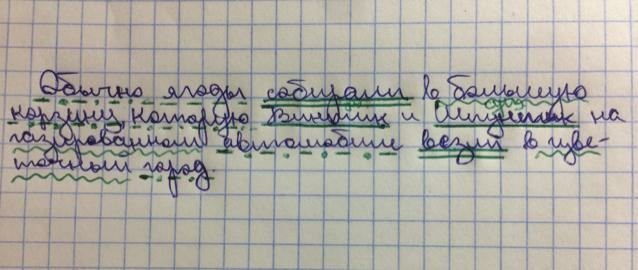 Обычно ягоды собирали в большую
корзину, которую Винтик и Шпунтик на
газированном автомобиле везли в цве-
точный город.